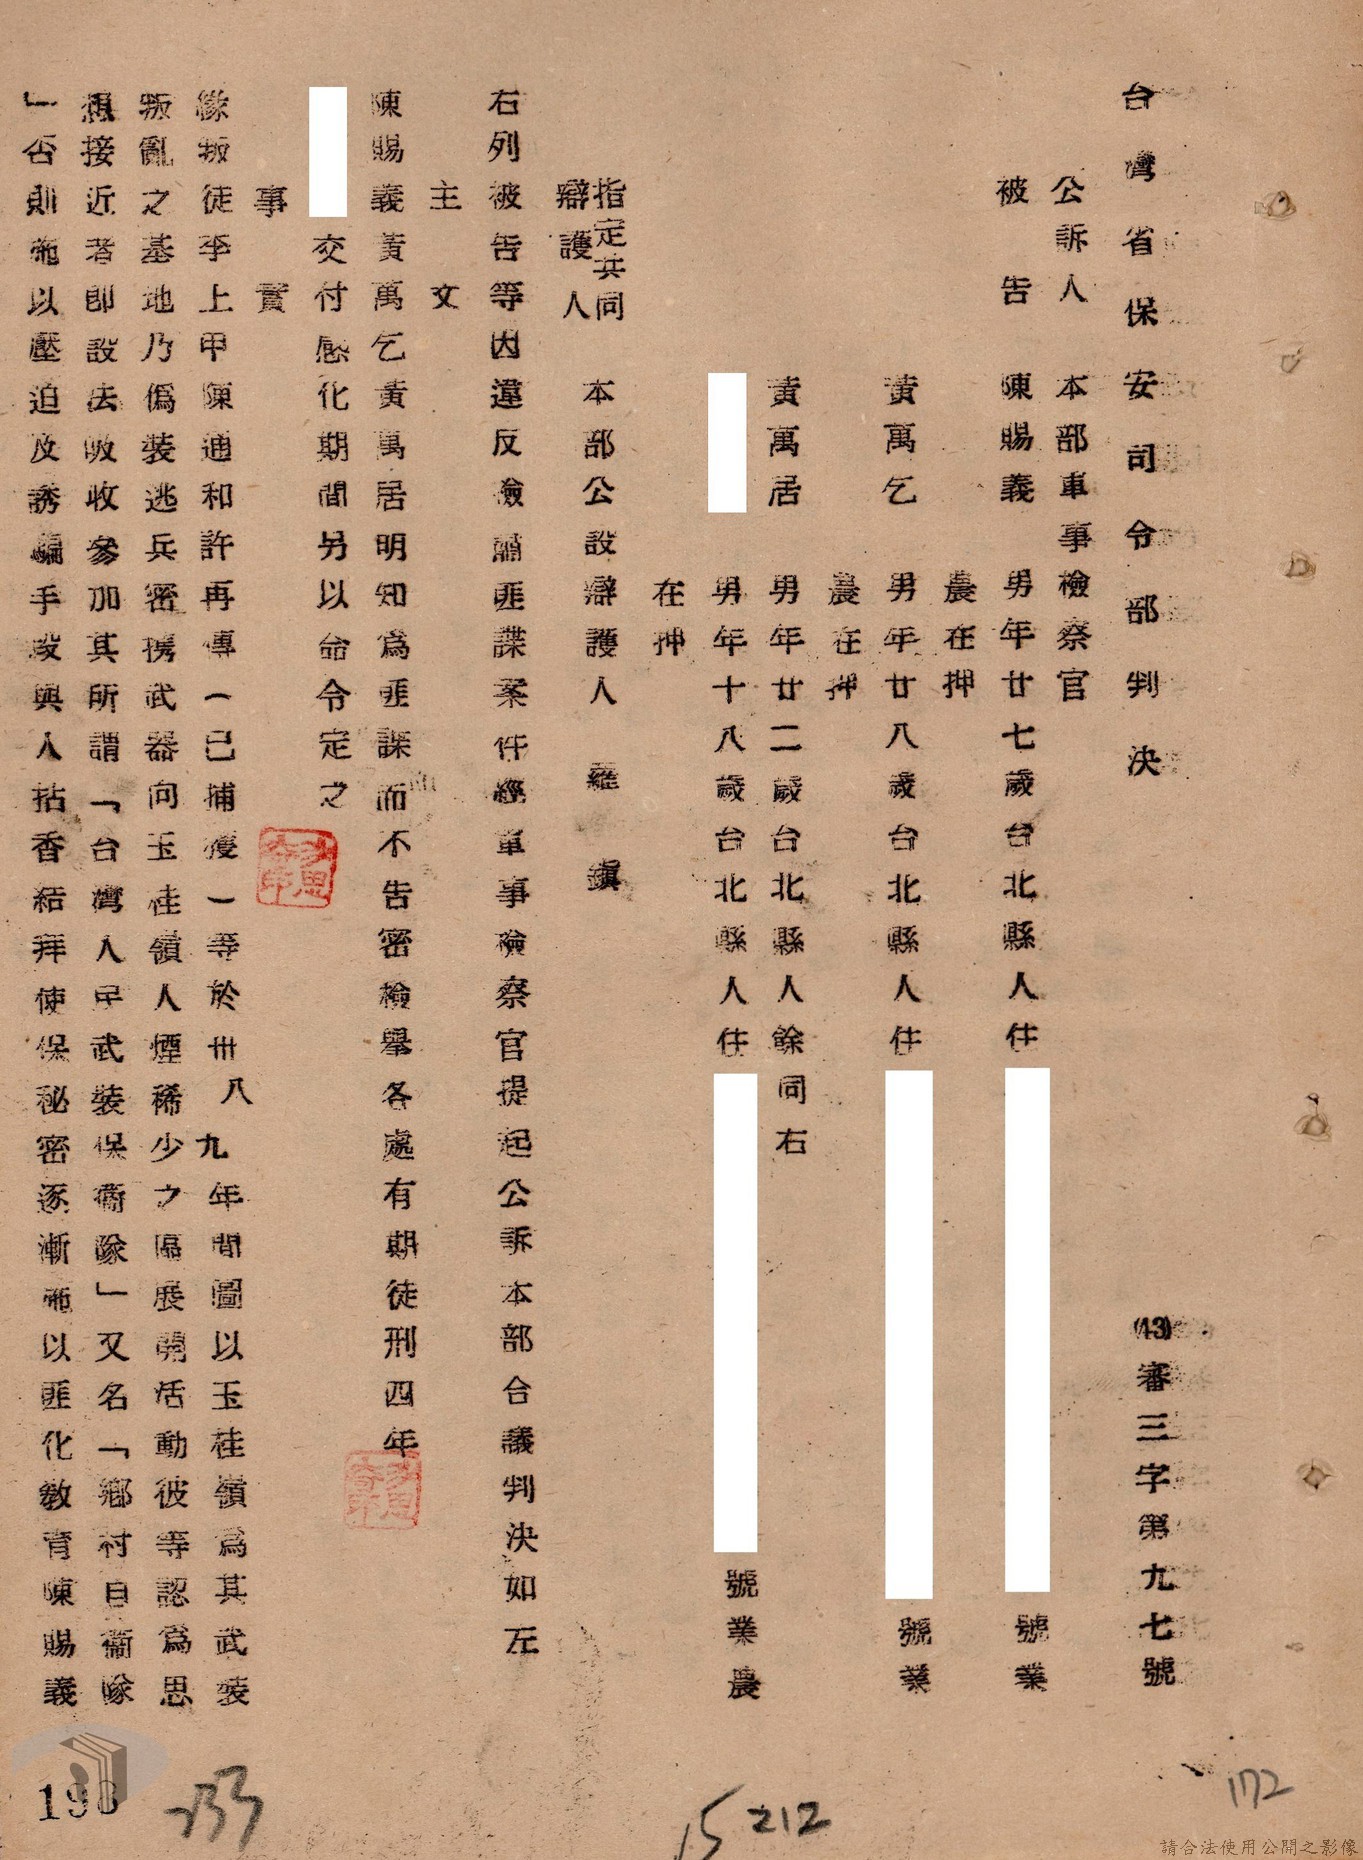 台灣省保安司令部判決
(43)審三字第九七號
公訴人 本部軍事檢察官
被告 陳賜義 男年廿七歲台北縣人住 號業
農在押
黃萬乞 男年廿八歲台北縣人住 號業
農在押
黃萬居 男年廿二歲台北縣人餘同右
男年十八歲台北縣人住 號業農
在押
指定共同
辯護人 本部公設辯護人 羅鎮
右列被告等因違反檢肅匪諜案件經軍事檢察官提起公訴本部合議判決如左
主文
陳賜義黃萬乞黃萬居明知為匪諜而不告密檢舉各處有期徒刑四年
交付感化期間另以命令定之
事實
緣叛徒李上甲陳通和許再傳(已捕獲)等於卅八九年間圖以玉桂嶺為其武裝
叛亂之基地乃偽裝逃兵密携武器向玉桂嶺人煙稀少之區展開活動彼等認為思
想接近者即設法吸收參加其所謂「台灣人民武裝保衛隊」又名「鄉村自衛隊
」否則施以壓迫及誘騙手段與人拈香結拜使保秘密逐漸施以匪化教育陳賜義
198
212
15
172
請合法使用公開之影像